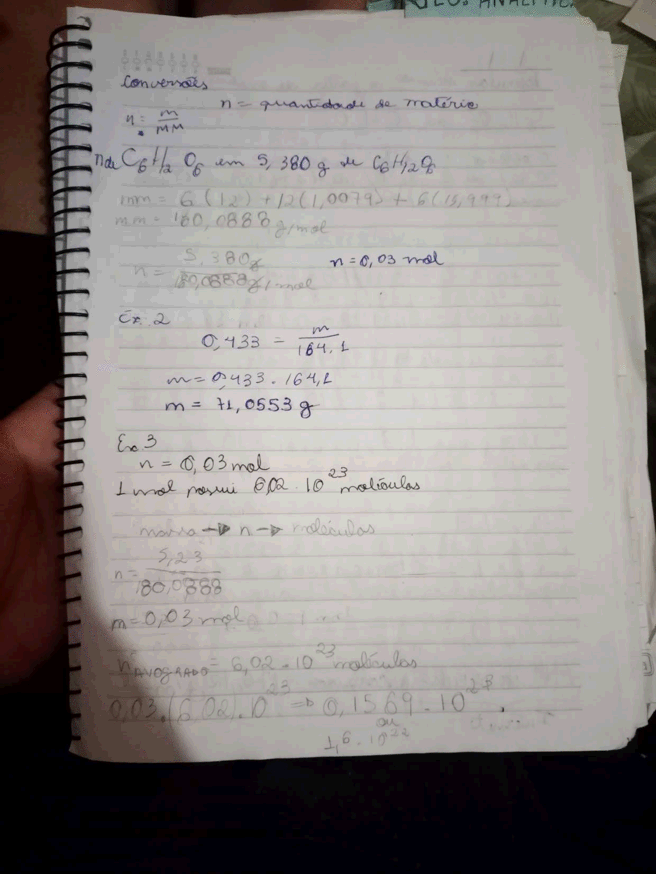 GEO. ANALÍTIC
Conversões
n = quantidade de matéria
n = m/MM
n de C6H12O6 em 5,380 g de C6H12O6
mm = 6(12) + 12(1,0079) + 6(15,999)
mm = 180,0888 g/mol
n = 5,380g/180,0888g/mol
n = 0,03 mol
Ex. 2
0,433 = m/164,1
m = 0,433 . 164,1
m = 71,0553 g
Ex. 3
n = 0,03 mol
1 mol possui 6,02 . 10^23 moléculas
massa → n → moléculas
n = 5,23/180,0888
m = 0,03 mol
n AVOGRADO = 6,02 . 10^23 moléculas
0,03.(6,02).10^23 ⇒ 0,1569 . 10^23
ou
1,6 . 10^22